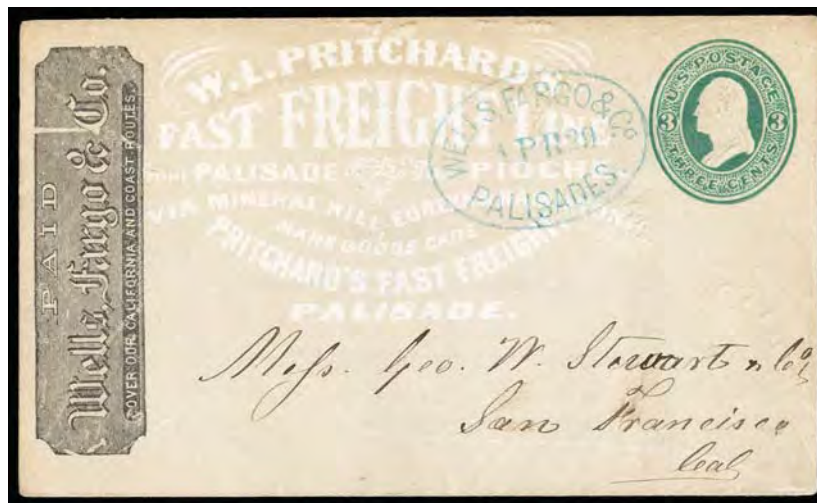 PAID
Wells, Fargo & Co.
OVER OUR CALIFORNIA AND COAST ROUTES.
W.L. PRITCHARD'S
FAST FREIGHT LINE
FROM PALISADE TO PIOCHE.
VIA MINERAL HILL, EUREKA
MARK GOODS CARE
PRITCHARD'S FAST FREIGHT
PALISADE.
WELLS, FARGO & Co
APR 20
PALISADES
U.S. POSTAGE
3 3
THREE CENTS
Mess. Geo. W. Stewart & Co,
San Francisco
Cal